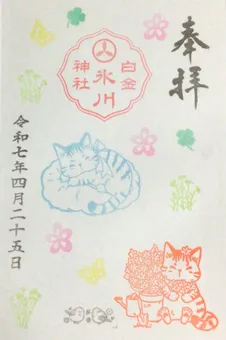 奉拝
白金
氷川
神社
令和七年四月二十五日